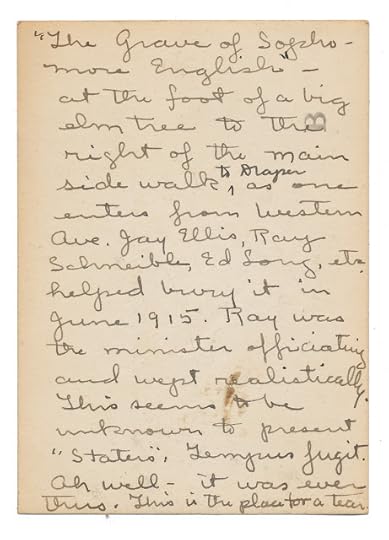 "The Grave of Sopho-
more English" –
at the foot of a big
elm tree to the
right of the main
side walk, to Draper as one
enters from Western
Ave. Jay Ellis, Ray
Schneible, Ed Long, etc.
helped bury it in
June 1915. Ray was
the minister officiating
and wept realistically.
This seems to be
unknown to present
"Staters". Tempus fugit.
Ah well – it was ever
thus. This is the place for a tear.